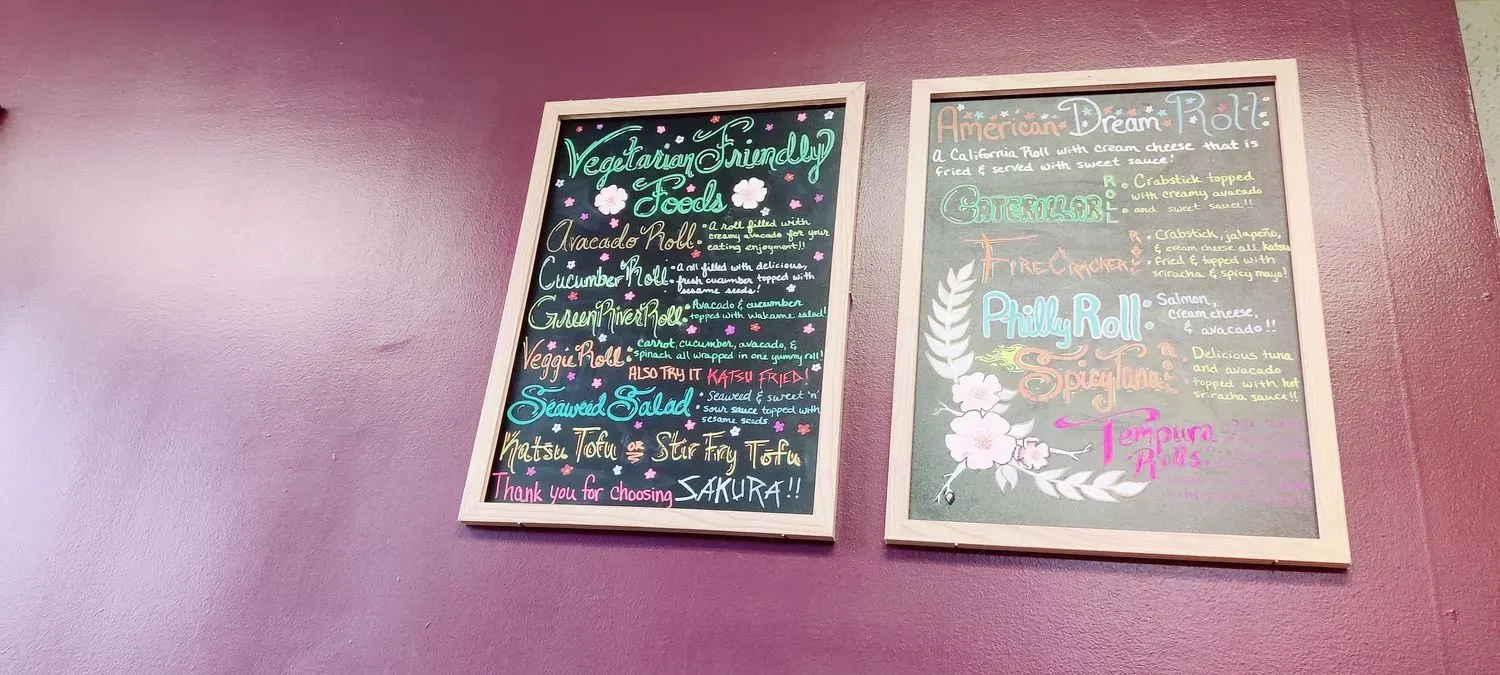 Vegetarian Friendly
Foods
Avacado Roll • A roll filled with
creamy avocado for your
eating enjoyment!!
Cucumber Roll • A roll filled with delicious,
fresh cucumber topped with
sesame seeds!
Green River Roll • Avacado & cucumber
topped with wakame salad!
Veggie Roll • Carrot, cucumber, avocado, &
spinach all wrapped in one yummy roll!
ALSO TRY IT KATSU FRIED!
Seaweed Salad • Seaweed & sweet 'n'
sour sauce topped with
sesame seeds.
Katsu Tofu OR Stir Fry Tofu
Thank you for choosing SAKURA!!
American Dream Roll
A California Roll with cream cheese that is
fried & served with sweet sauce!
CATERILLAR ROLL • Crabstick topped
with creamy avacado
and sweet sauce!!
FIRECRACKER ROLL • Crabstick, jalapeño,
& cream cheese all katsu
fried & topped with
sriracha & spicy mayo!
Philly Roll • Salmon,
cream cheese,
& avacado!!
Spicy Tuna Roll • Delicious tuna
and avacado
topped with hot
sriracha sauce!!
Tempura
Rolls